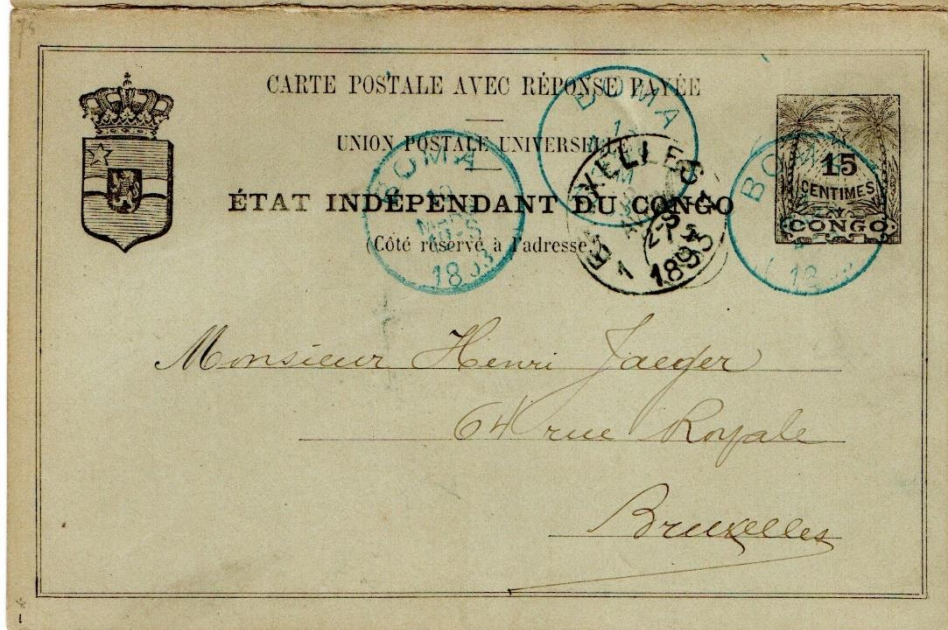 CARTE POSTALE AVEC RÉPONSE PAYÉE
UNION POSTALE UNIVERSELLE
ÉTAT INDÉPENDANT DU CONGO
(Côté réservé à l'adresse)
15
CENTIMES
CONGO
BOMA
1893
BOMA
BOMA
18
1893
Monsieur Henri Jaeger
64 rue Royale
Bruxelles
1